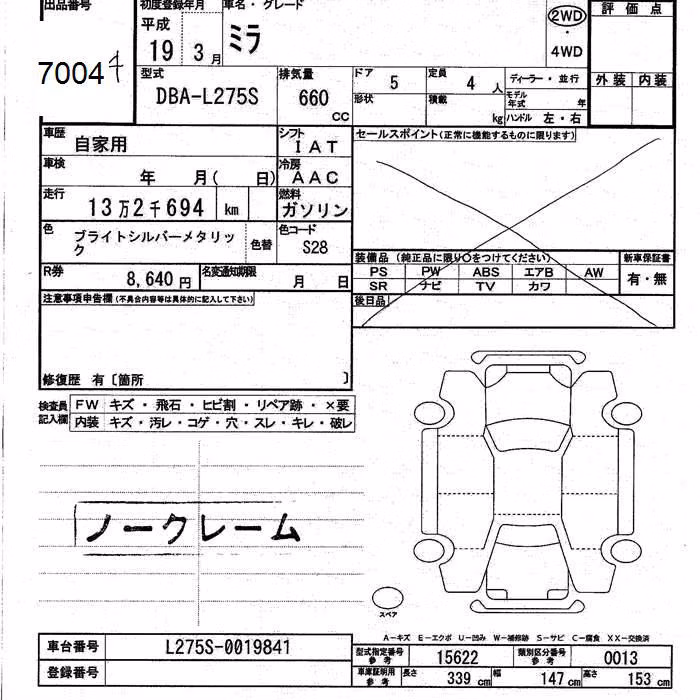 出品番号 初度登録年月 車名・グレード 評価点
平成 19 3月 ミラ 2WD・4WD
7004
型式 排気量 ドア 5 定員 4人 ディーラー・並行 外装 内装
DBA-L275S 660 CC 形状 積載 kg モデル年式 年 ハンドル 左・右
車歴 自家用 シフト IAT セールスポイント(正常に機能するものに限ります)
車検 年 月( 日) 冷房 AAC
走行 13万2千694 km 燃料 ガソリン
色 ブライトシルバーメタリック 色替 色コード S28
装備品 (純正品に限り〇をつけてください) 新車保証書
PS PW ABS エアB AW 有・無
SR ナビ TV カワ
R券 8,640円 名変通知期限 月 日 後日品
注意事項申告欄 (不具合内容等は具体的に記入して下さい)
修復歴 有〔箇所 〕
検査員記入欄 FW キズ・飛石・ヒビ割・リペア跡・×要
内装 キズ・汚レ・コゲ・穴・スレ・キレ・破レ
ノークレーム
スペア
A-キズ E-エクボ U-凹み W-補修跡 S-サビ C-腐食 XX-交換済
車台番号 L275S-0019841 型式指定番号 参考 15622 類別区分番号 参考 0013
登録番号 車庫証明用 参考 長さ 339cm 幅 147cm 高さ 153cm